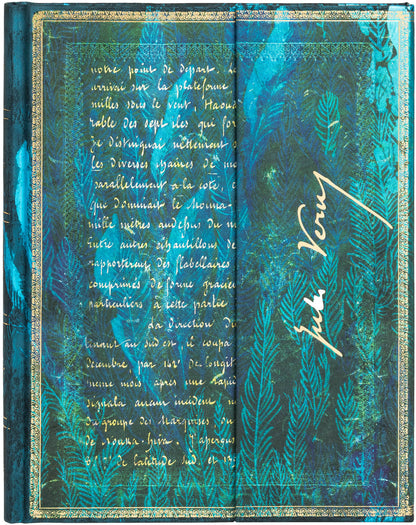 notre point de départ. Le
arrivai sur la plateforme
milles sous le vent, Haoua
rable des sept îles qui for
Je distinguai nettement s
les diverses chaînes de mo
parallèlement à la côte, e
que dominait le Mouna-
mille mètres au dessus du n
entre autres échantillons de
rapportèrent des flabellaires
comprimés de forme gracie
particuliers à cette partie
La Direction du
au sud est, il coupa
décembre, par 142° de longit
même mois, après une rapi
signala aucun incident no
du groupe des Marquises, ou
de Nouka-Hiva. J'aperçus
de latitude sud, et 139
Jules Verne